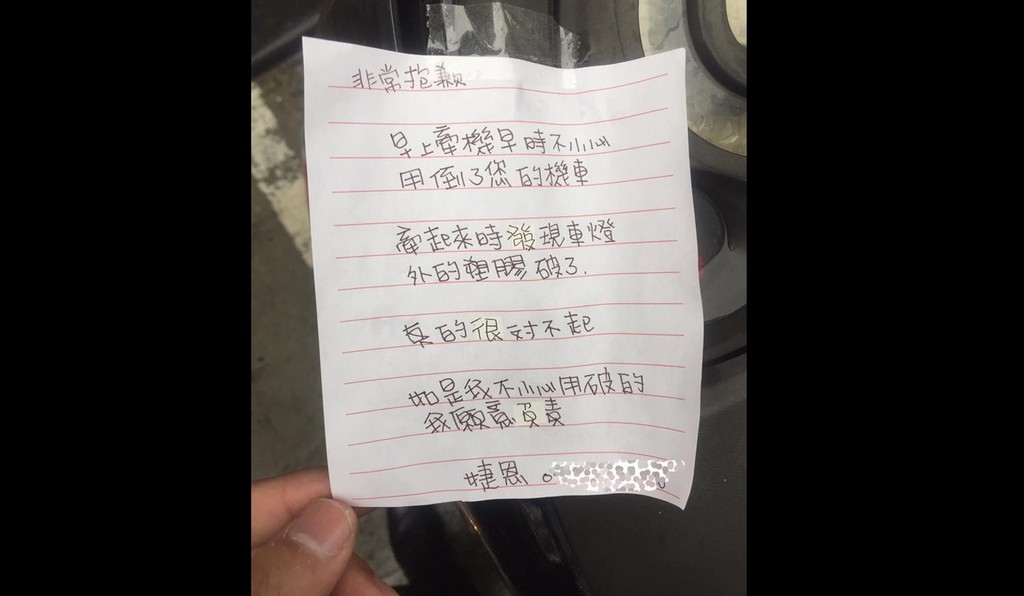 非常抱歉
早上牽機車時不小心
用倒了您的機車
牽起來時發現車燈
外的塑膠破了.
真的很対不起
如是我不小心用破的
我願意負責
婕恩 0